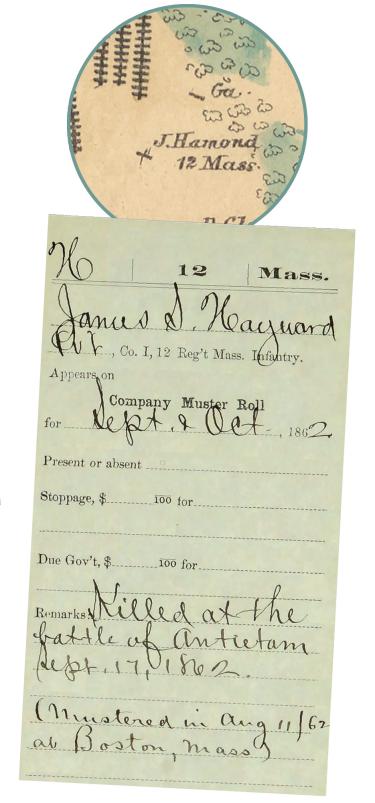 Ga.
J. Hamond
12 Mass.
H 12 Mass.
James S. Hayward
Pvt, Co. I, 12 Reg't Mass. Infantry.
Appears on
Company Muster Roll
for Sept. & Oct., 1862
Present or absent
Stoppage, $ 100 for
Due Gov't, $ 100 for
Remarks: Killed at the
battle of Antietam
Sept. 17, 1862.
(Mustered in Aug 11/62
at Boston, Mass)